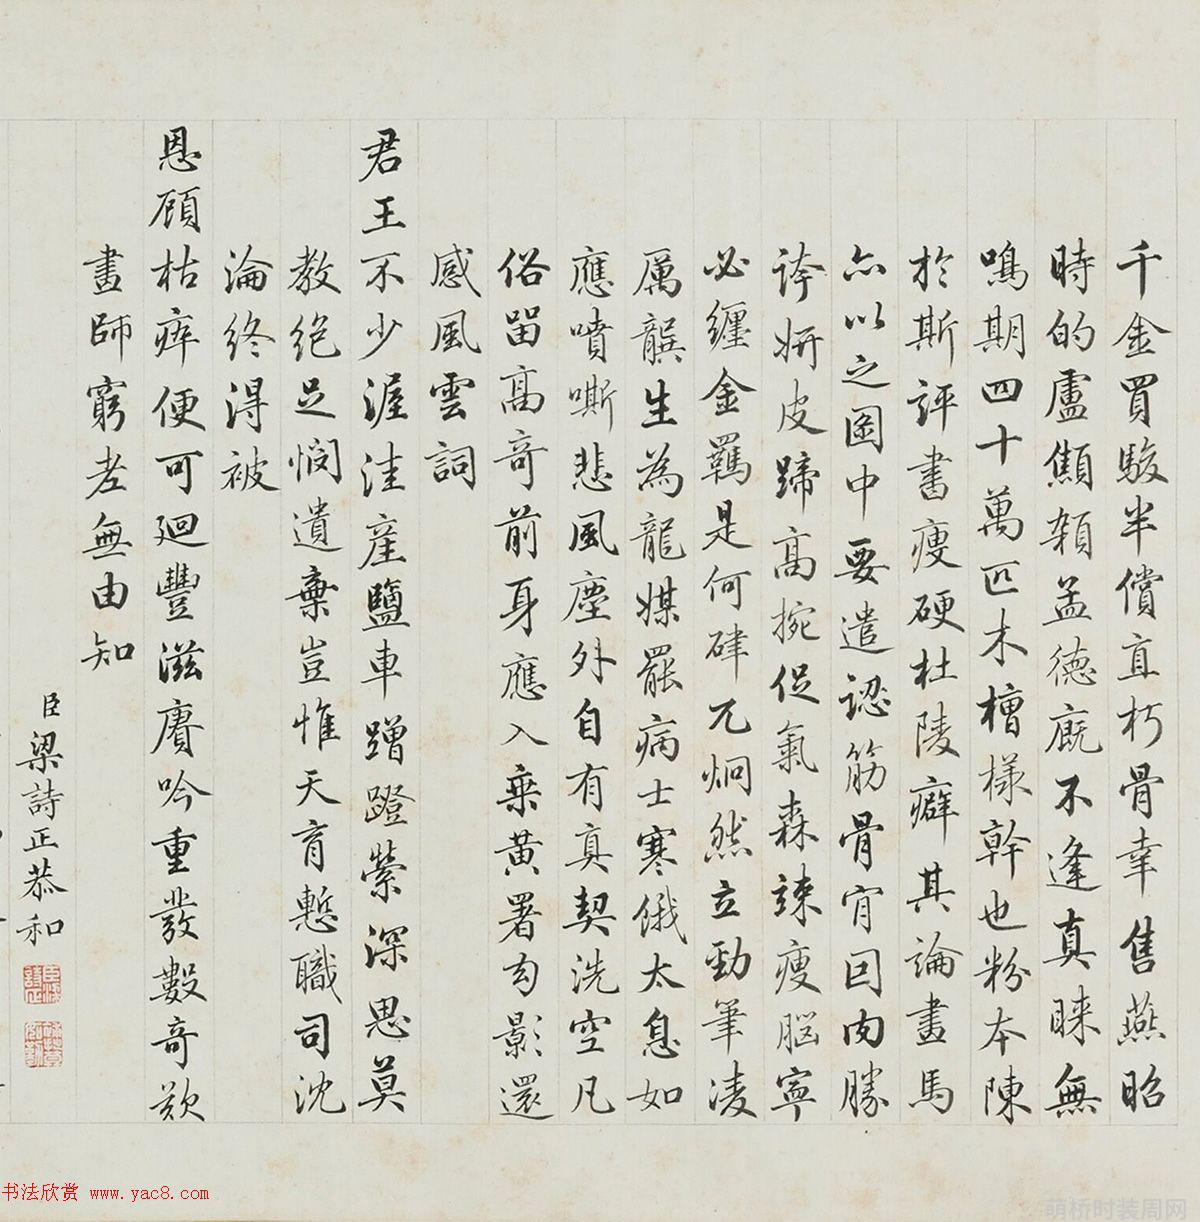 千金買駿半償直朽骨幸售燕昭
時的盧顑頷孟德廐不逢真睐無
鳴期四十萬匹木櫓樣幹也粉本陳
於斯評書瘦硬杜陵癖其論畫馬
亦以之圖中要遣認筋骨肯回肉勝
誇妍皮蹄高捥促氣森竦瘦腦寧
必纏金羈是何硉兀炯然立勁筆凌
厲髸生為龍媒罷病士寒俄太息如
應噴嘶悲風塵外自有真契洗空凡
俗留高奇前身應入乗黃署匄影還
感風雲詞
君王不少渥洼產鹽車蹭蹬縈深思莫
教絕足憫遺棄豈惟天育慙職司沈
淪終得被
恩顧枯瘁便可迴豐滋賡吟重發數奇歎
畫師窮老無由知
臣梁詩正恭和
书法欣赏 www.yac8.com
萌桥时装周网